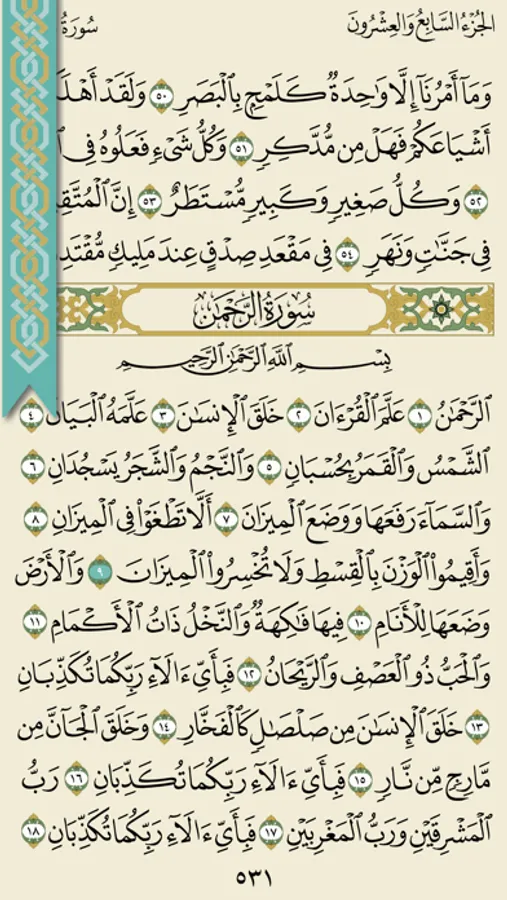 الجُزْءُ السَّابِعُ وَالعِشْرُونَ
سُورَةُ
وَمَآ أَمْرُنَآ إِلَّا وَٰحِدَةٌ كَلَمْحٍۭ بِٱلْبَصَرِ ٥٠ وَلَقَدْ أَهْلَ
أَشْيَاعَكُمْ فَهَلْ مِن مُّدَّكِرٍ ٥١ وَكُلُّ شَىْءٍ فَعَلُوهُ فِى
٥٢ وَكُلُّ صَغِيرٍ وَكَبِيرٍ مُّسْتَطَرٌ ٥٣ إِنَّ ٱلْمُتَّقِ
فِى جَنَّٰتٍ وَنَهَرٍ ٥٤ فِى مَقْعَدِ صِدْقٍ عِندَ مَلِيكٍ مُّقْتَدِ
سُورَةُ الرَّحْمَٰن
بِسْمِ ٱللَّهِ ٱلرَّحْمَٰنِ ٱلرَّحِيمِ
ٱلرَّحْمَٰنُ ١ عَلَّمَ ٱلْقُرْءَانَ ٢ خَلَقَ ٱلْإِنسَٰنَ ٣ عَلَّمَهُ ٱلْبَيَانَ ٤
ٱلشَّمْسُ وَٱلْقَمَرُ بِحُسْبَانٍ ٥ وَٱلنَّجْمُ وَٱلشَّجَرُ يَسْجُدَانِ ٦
وَٱلسَّمَآءَ رَفَعَهَا وَوَضَعَ ٱلْمِيزَانَ ٧ أَلَّا تَطْغَوْا۟ فِى ٱلْمِيزَانِ ٨
وَأَقِيمُوا۟ ٱلْوَزْنَ بِٱلْقِسْطِ وَلَا تُخْسِرُوا۟ ٱلْمِيزَانَ ٩ وَٱلْأَرْضَ
وَضَعَهَا لِلْأَنَامِ ١٠ فِيهَا فَٰكِهَةٌ وَٱلنَّخْلُ ذَاتُ ٱلْأَكْمَامِ ١١
وَٱلْحَبُّ ذُو ٱلْعَصْفِ وَٱلرَّيْحَانُ ١٢ فَبِأَىِّ ءَالَآءِ رَبِّكُمَا تُكَذِّبَانِ
١٣ خَلَقَ ٱلْإِنسَٰنَ مِن صَلْصَٰلٍ كَٱلْفَخَّارِ ١٤ وَخَلَقَ ٱلْجَآنَّ مِن
مَّارِجٍ مِّن نَّارٍ ١٥ فَبِأَىِّ ءَالَآءِ رَبِّكُمَا تُكَذِّبَانِ ١٦ رَبُّ
ٱلْمَشْرِقَيْنِ وَرَبُّ ٱلْمَغْرِبَيْنِ ١٧ فَبِأَىِّ ءَالَآءِ رَبِّكُمَا تُكَذِّبَانِ ١٨
٥٣١